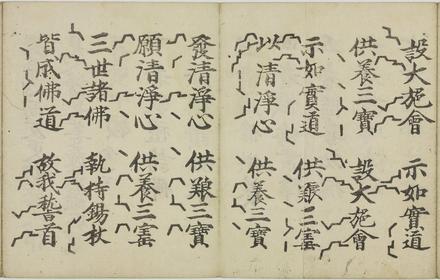 設大施會 示如實道
供養三寶 設大施會
示如實道 供養三寶
以清淨心 供養三寶
發清淨心 供養三寶
願清淨心 供養三寶
三世諸佛 執持錫杖
皆成佛道 故我稽首